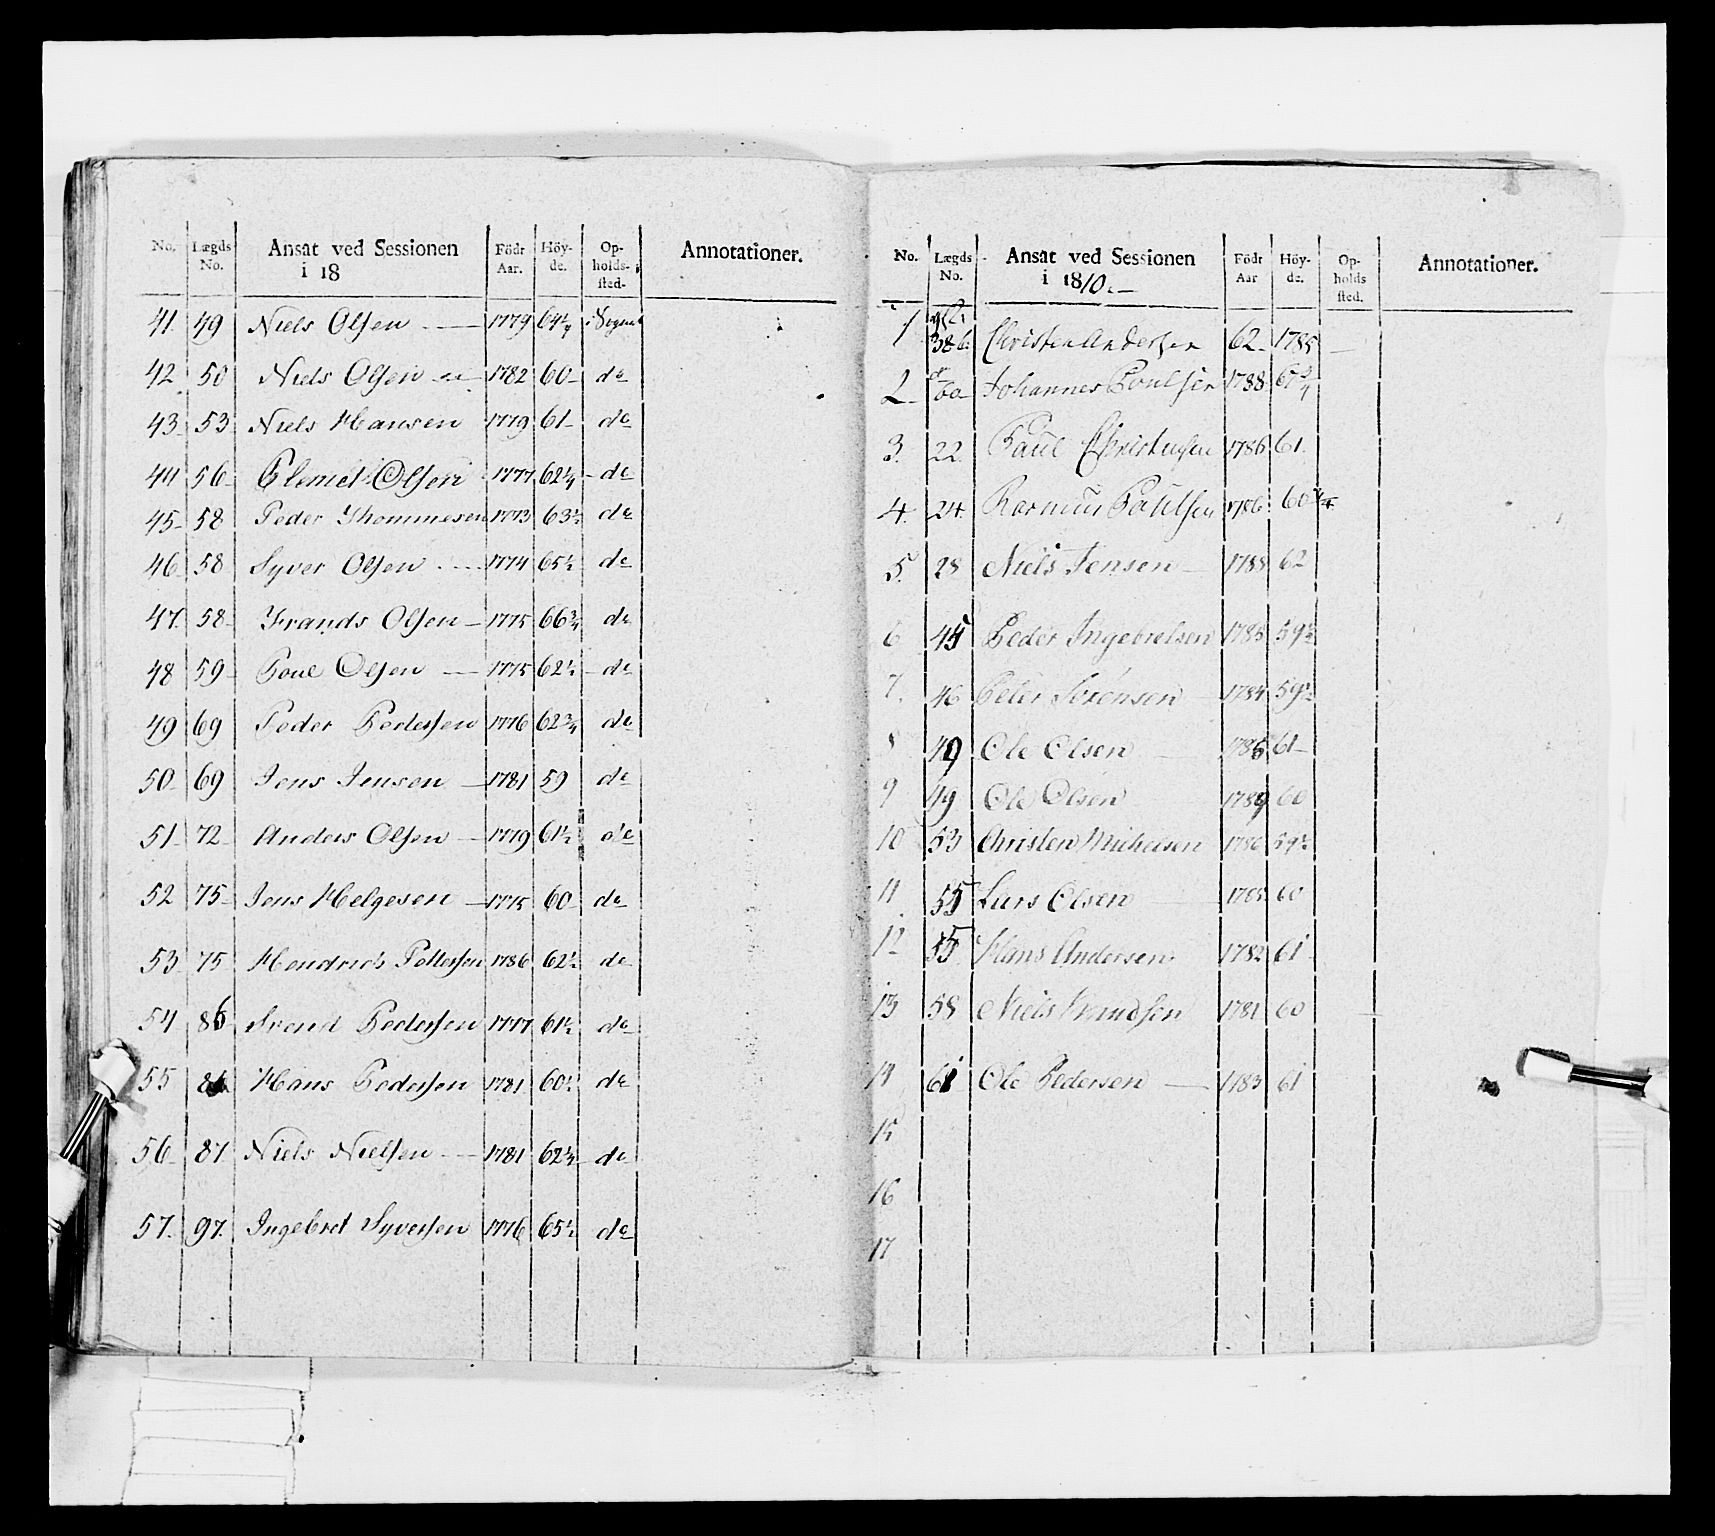 No. Lægds No. Ansat ved Sessionen i 18 Födt Aar. Höy-de. Op-holds-sted. Annotationer.
41. 49 Niels Olsen 1779 64¼
42 50 Niels Olsen 1782 60 de
43 53 Niels Hansen 1779 61 de
44 56 Clemet Olsen 1777 62¼ de
45 58 Peder Thommesen 1773 63½ de
46 58 Syver Olsen 1774 65½ de
47 58 Frands Olsen 1775 66¾ de
48 59 Poul Olsen 1775 62½ de
49 69 Peder Pedersen 1776 62¾ de
50 69 Jens Jensen 1781 59 de
51 72 Anders Olsen 1779 61½ de
52 75 Jens Helgesen 1775 60 de
53 75 Hendrich Pettersen 1786 62½ de
54 86 Svend Pedersen 1777 61½ de
55 86 Hans Pedersen 1781 60½ de
56 87 Niels Nielsen 1781 62¼ de
57. 97. Ingebret Syversen 1776 65½ de
No. Lægds No. Ansat ved Sessionen i 1810. Födt Aar Höy-de. Op-holds sted. Annotationer.
1 386 Christen Andersen 62 1785
2 60 Johannes Poulsen 1788 67¾
3. 22 Paul Christensen 1786 61.
4. 24. Rasmus Paulsen 1786 60¼
5. 28 Niels Jensen 1788 62
6 45 Peder Ingebretsen 1785 59½
7. 46 Peter Sörensen 1784 59½
8 49 Ole Olsen 1786 61
9 49 Ole Olsen 1789 60
10 53 Christen Michelsen 1786 59½
11 55 Lars Olsen 1785 60
12 55 Hans Andersen 1782 61
13 58 Niels Knudsen 1781 60
14 61 Ole Pedersen 1783 61
15
16
17